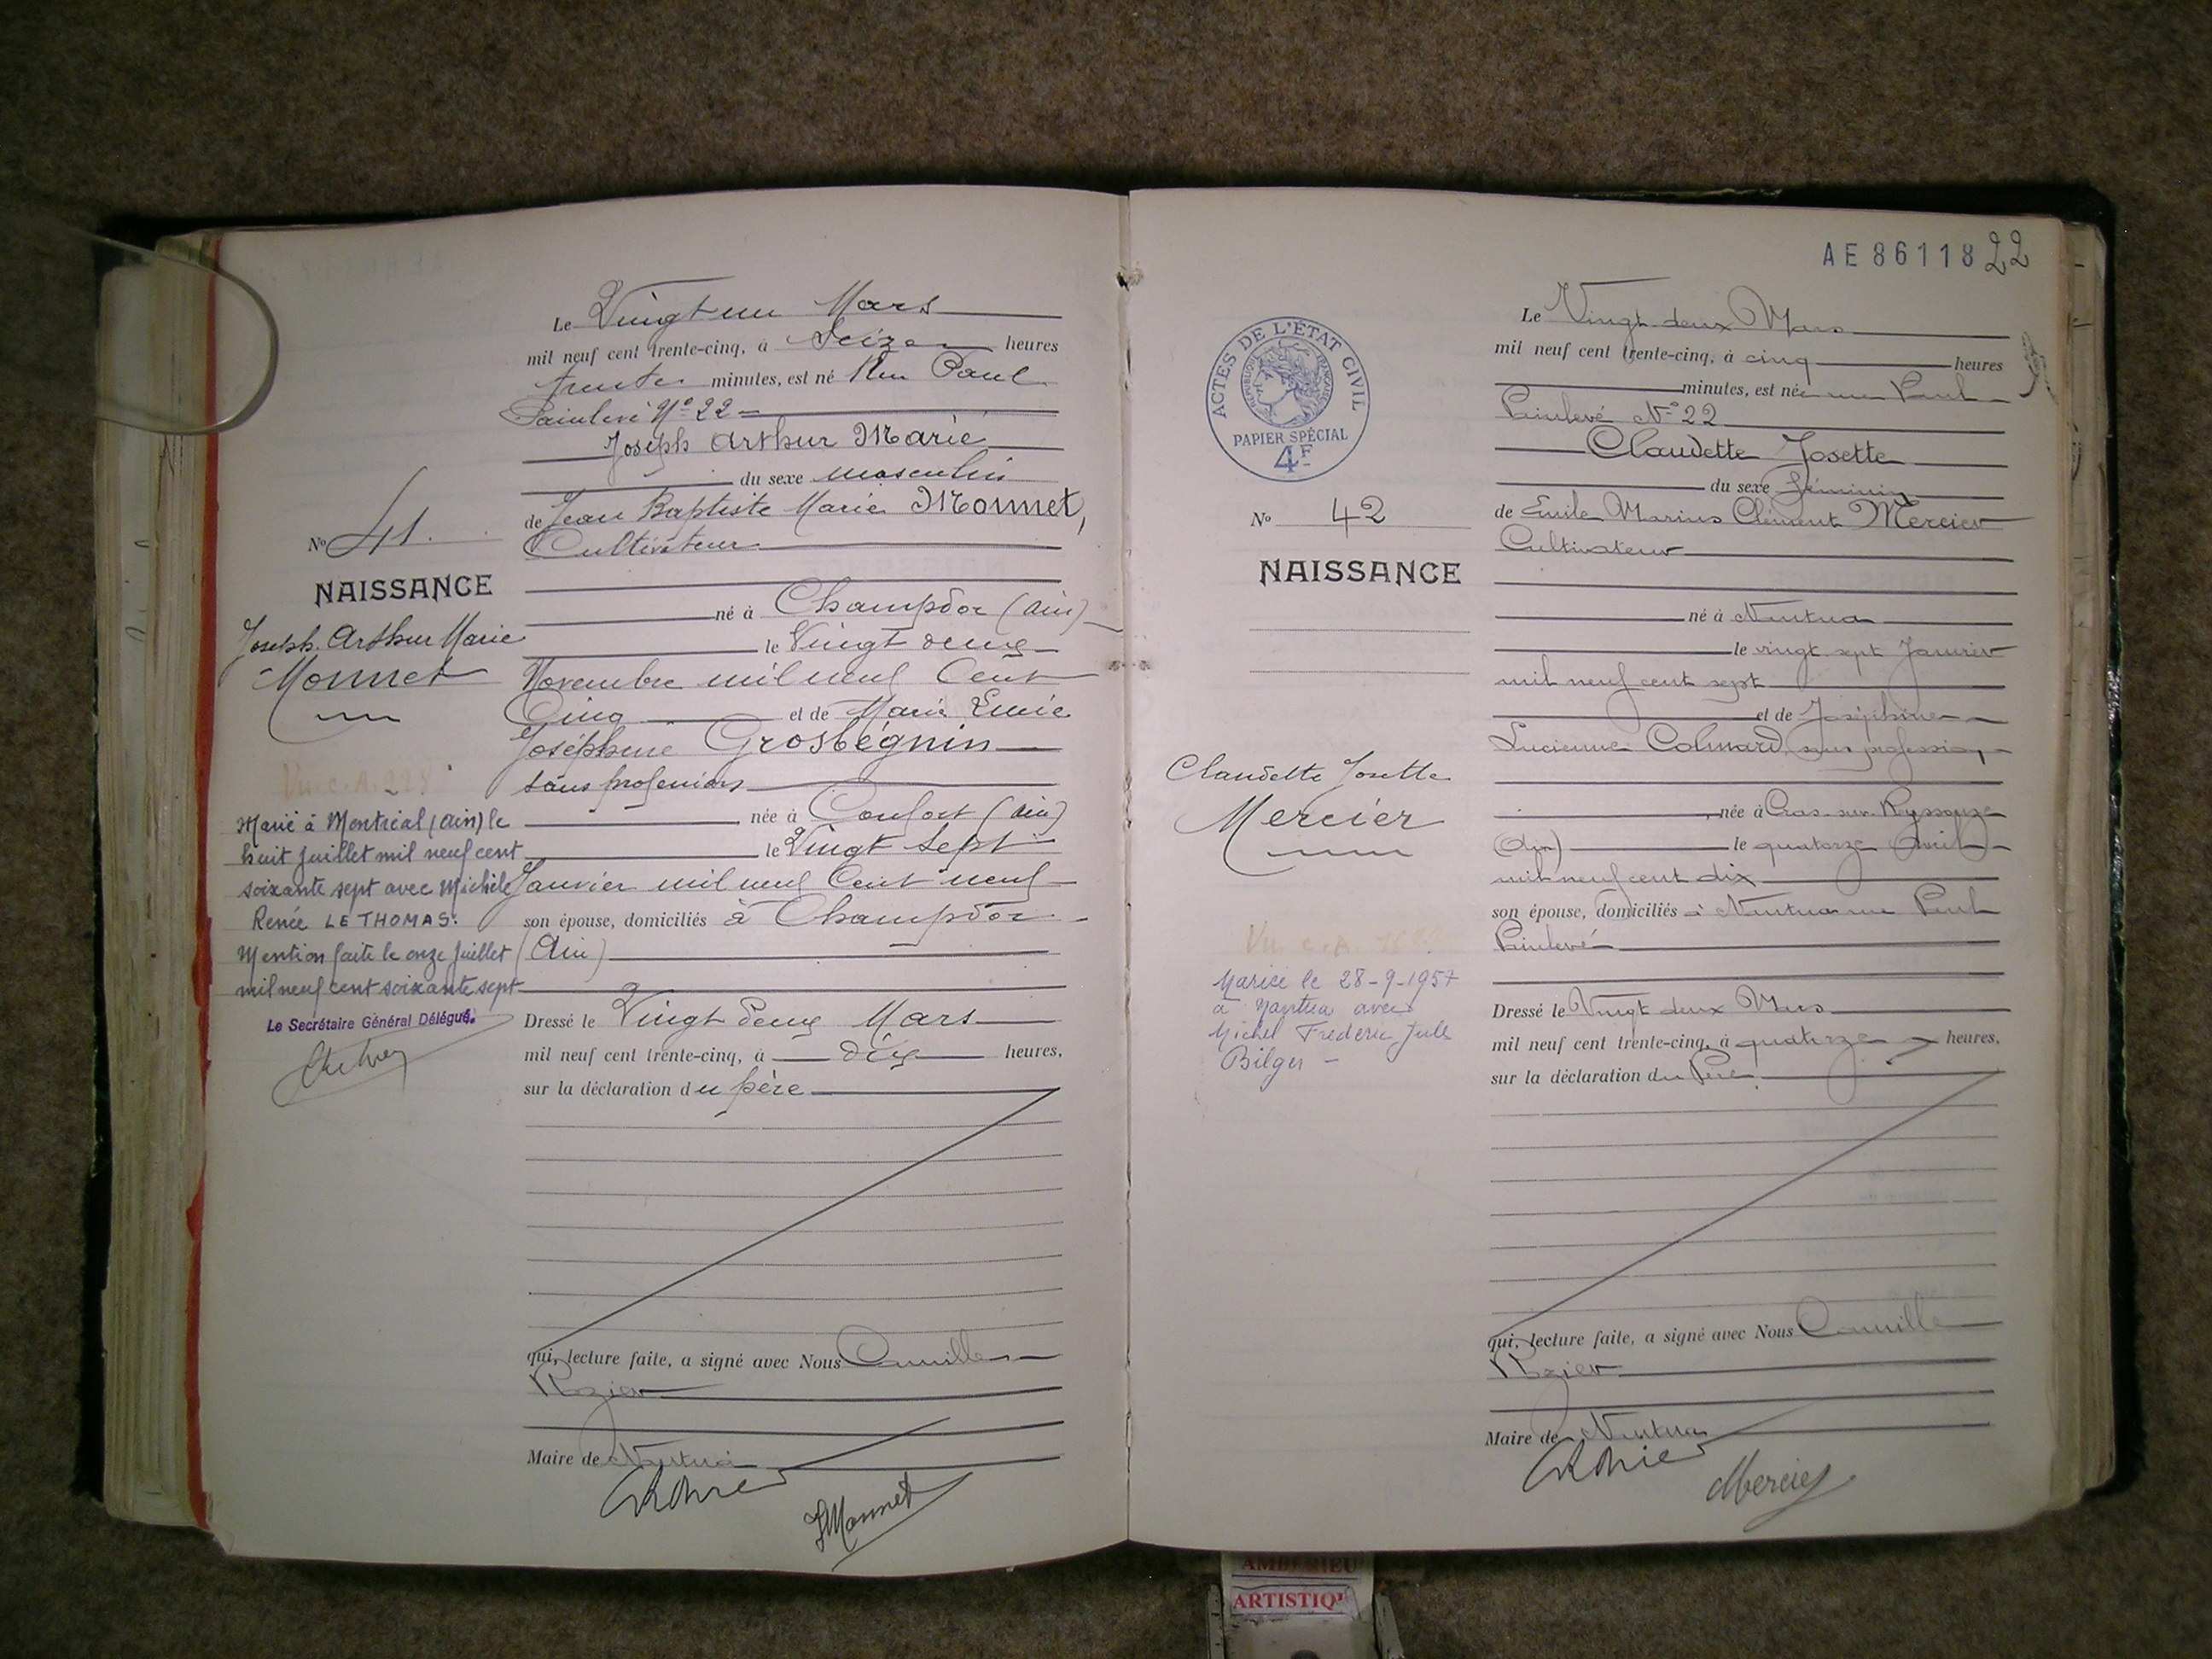 Le Vingt un Mars
mil neuf cent trente-cinq, à Seize heures
trente minutes, est né Rue Paul
Painlevé N° 22
Joseph Arthur Marie
du sexe masculin
de Jean Baptiste Marie Monnet,
Cultivateur
né à Champdor (Ain)
le Vingt deux
Novembre mil neuf Cent
Cinq et de Marie
Joséphine Grosbégnin
sans profession
née à Confort (Ain)
le Vingt Sept
Janvier mil neuf Cent neuf
son épouse, domiciliés à Champdor
(Ain)
Dressé le Vingt deux Mars
mil neuf cent trente-cinq, à dix heures,
sur la déclaration du père
qui, lecture faite, a signé avec Nous Camille
Rozier
Maire de Nantua
JMonnet
N° 41.
NAISSANCE
Joseph Arthur Marie
Monnet
Vu. C.A. 228
Marié à Montréal (Ain) le
huit Juillet mil neuf cent
soixante sept avec Michèle
Renée LE THOMAS.
Mention faite le onze Juillet
mil neuf cent soixante sept
Le Secrétaire Général Délégué.
AE 86118 22
ACTES DE L'ÉTAT CIVIL
RÉPUBLIQUE FRANÇAISE
PAPIER SPÉCIAL
4F
N° 42
NAISSANCE
Claudette Josette
Mercier
Vu C.A.
Mariée le 28-9-1957
à Nantua avec
Michel Frédéric Jules
Bilger -
Le Vingt deux Mars
mil neuf cent trente-cinq, à cinq heures
minutes, est née rue Paul
Painlevé N° 22
Claudette Josette
du sexe féminin
de Emile Marius Clément Mercier
Cultivateur
né à Nantua
le vingt sept Janvier
mil neuf cent sept
et de Joséphine
Lucienne Colmard, sans profession,
née à Cras-sur-Reyssouze
(Ain) le quatorze Avril
mil neuf cent dix
son épouse, domiciliés à Nantua rue Paul
Painlevé
Dressé le Vingt deux Mars
mil neuf cent trente-cinq, à quatorze heures,
sur la déclaration du Père
qui, lecture faite, a signé avec Nous Camille
Rozier
Maire de Nantua
Mercier
AMBERIEU
ARTISTIQ